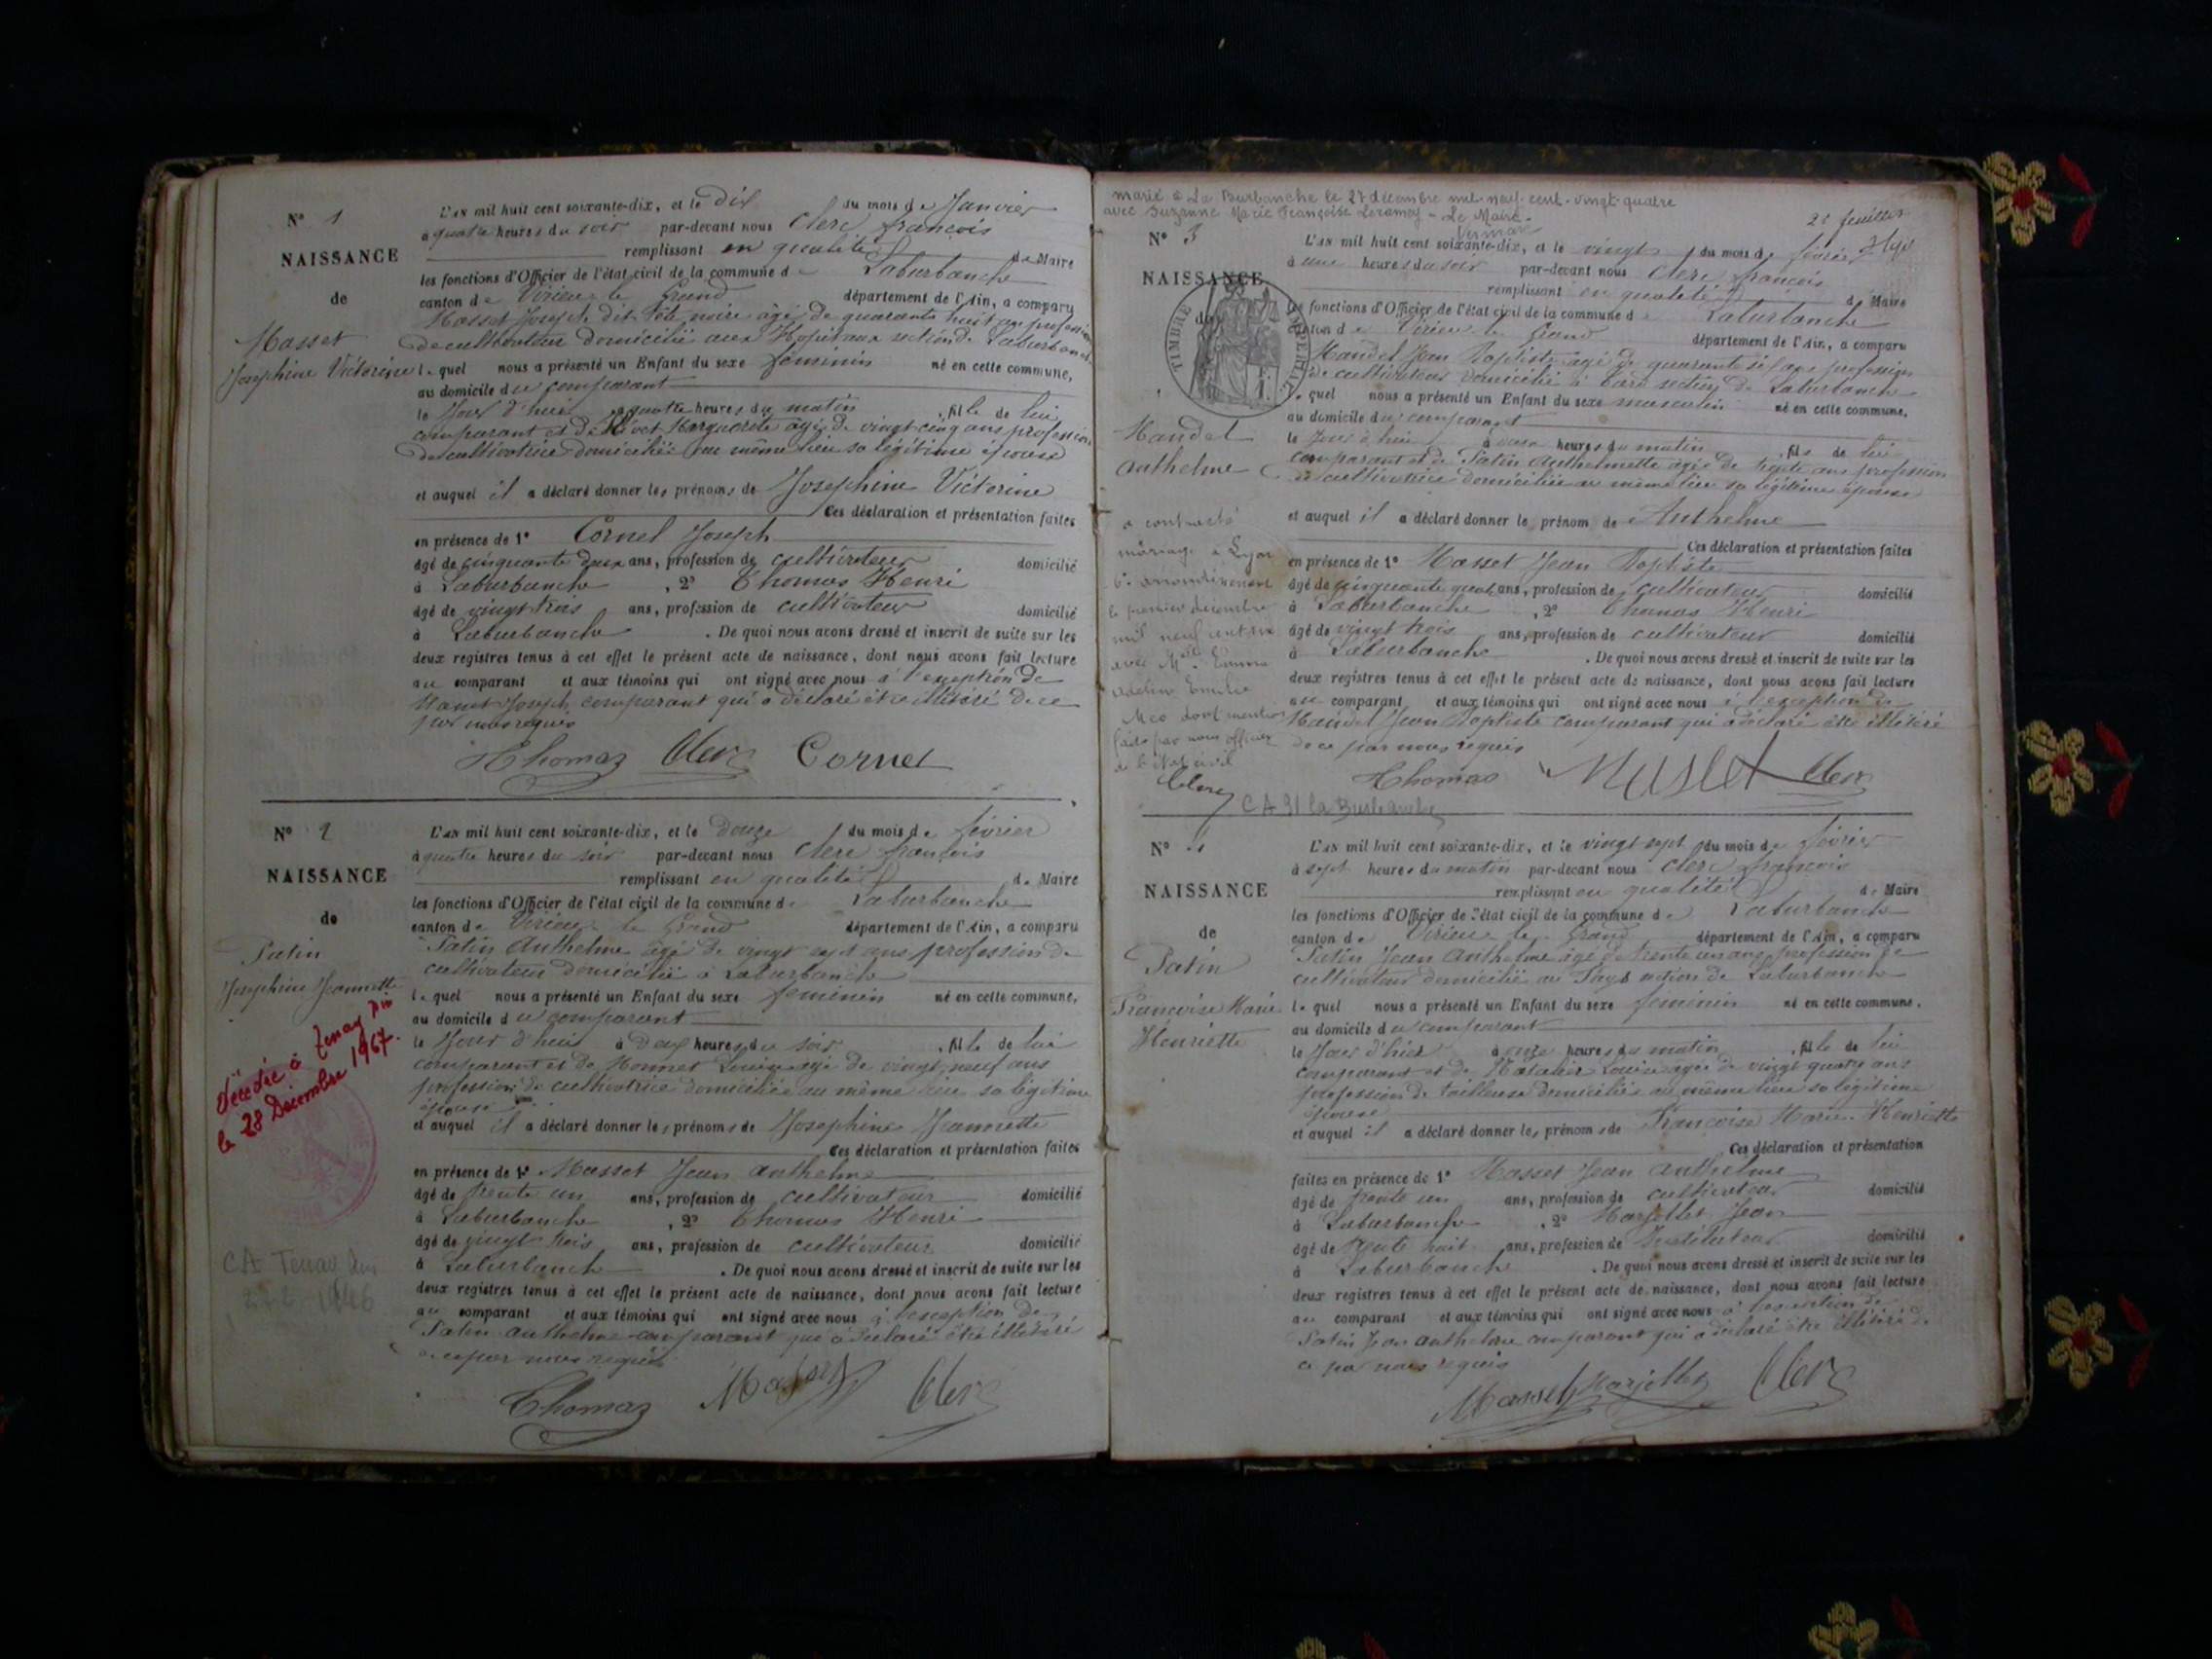 N° 1
NAISSANCE
de
Masset
Josephine Victorine
L'AN mil huit cent soixante-dix, et le dix du mois de Janvier
à quatre heures du soir par-devant nous Clerc françois
remplissant en qualité de Maire
les fonctions d'Officier de l'état civil de la commune de Laburbanche
canton de Virieu le Grand département de l'Ain, a comparu
Masset Joseph dit tête noire âgé de quarante huit ans profession
de cultivateur domicilié aux section de Laburbanche
lequel nous a présenté un Enfant du sexe féminin né en cette commune,
au domicile du comparant
le Jour d'hui à quatre heures du matin , fille de lui
comparant et de Marguerite âgée de vingt cinq ans profession
de cultivatrice domiciliée au même lieu sa légitime épouse
et auquel il a déclaré donner les prénoms de Josephine Victorine
Ces déclaration et présentation faites
en présence de 1° Cornel Joseph
âgé de cinquante deux ans, profession de cultivateur domicilié
à Laburbanche , 2° Thomas Henri
âgé de vingt trois ans, profession de cultivateur domicilié
à Laburbanche . De quoi nous avons dressé et inscrit de suite sur les
deux registres tenus à cet effet le présent acte de naissance, dont nous avons fait lecture
au comparant et aux témoins qui ont signé avec nous à l'exception de
Masset Joseph comparant qui a déclaré être illitéré de ce
par nous requis
Thomas Clerc Cornel
N° 2
NAISSANCE
de
Patin
Josephine Jeannette
Décédée à Tenay Ain
le 28 Décembre 1967.
CA Tenay Ain
1946
L'AN mil huit cent soixante-dix, et le douze du mois de février
à quatre heures du soir par-devant nous Clerc françois
remplissant en qualité de Maire
les fonctions d'Officier de l'état civil de la commune de Laburbanche
canton de Virieu le Grand département de l'Ain, a comparu
Patin Anthelme âgé de vingt sept ans profession de
cultivateur domicilié à Laburbanche
lequel nous a présenté un Enfant du sexe féminin né en cette commune,
au domicile du comparant
le Jour d'hui à deux heures du soir , fille de lui
comparant et de Monnet Louise âgée de vingt neuf ans
profession de cultivatrice domiciliée au même lieu sa légitime
épouse
et auquel il a déclaré donner les prénoms de Josephine Jeannette
Ces déclaration et présentation faites
en présence de 1° Masset Jean Anthelme
âgé de trente un ans, profession de cultivateur domicilié
à Laburbanche , 2° Thomas Henri
âgé de vingt trois ans, profession de cultivateur domicilié
à Laburbanche . De quoi nous avons dressé et inscrit de suite sur les
deux registres tenus à cet effet le présent acte de naissance, dont nous avons fait lecture
au comparant et aux témoins qui ont signé avec nous à l'exception de
Patin Anthelme comparant qui a déclaré être illitéré
de ce par nous requis
Thomas Masset Clerc
marié à La Burbanche le 27 décembre mil neuf cent vingt quatre
avec Suzanne Marie Françoise - Le Maire -
N° 3
NAISSANCE
de
TIMBRE IMPERIAL
Mandel
Anthelme
a contracté
mariage à Lyon
6e arrondissement
le premier décembre
mil neuf cent six
avec Mlle Emma
Emélie
dont mention
faite par nous officier
de l'état civil
Clerc
CA 31 la Burbanche
2e feuillet
L'AN mil huit cent soixante-dix, et le vingt du mois de février
à une heure du soir par-devant nous Clerc françois
remplissant en qualité de Maire
les fonctions d'Officier de l'état civil de la commune de Laburbanche
canton de Virieu le Grand département de l'Ain, a comparu
Mandel Jean Baptiste âgé de quarante six ans profession
de cultivateur domicilié à section de Laburbanche
lequel nous a présenté un Enfant du sexe masculin né en cette commune,
au domicile du comparant
le Jour d'hui à heures du matin , fils de lui
comparant et de Patin Anthelmette âgée de trente ans profession
de cultivatrice domiciliée au même lieu sa légitime épouse
et auquel il a déclaré donner le prénom de Anthelme
Ces déclaration et présentation faites
en présence de 1° Masset Jean Baptiste
âgé de cinquante quatre ans, profession de cultivateur domicilié
à Laburbanche , 2° Thomas Henri
âgé de vingt trois ans, profession de cultivateur domicilié
à Laburbanche . De quoi nous avons dressé et inscrit de suite sur les
deux registres tenus à cet effet le présent acte de naissance, dont nous avons fait lecture
au comparant et aux témoins qui ont signé avec nous à l'exception de
Mandel Jean Baptiste comparant qui a déclaré être illitéré
de ce par nous requis
Thomas Masset Clerc
N° 4
NAISSANCE
de
Patin
Françoise Marie
Henriette
L'AN mil huit cent soixante-dix, et le vingt sept du mois de février
à sept heures du matin par-devant nous Clerc françois
remplissant en qualité de Maire
les fonctions d'Officier de l'état civil de la commune de Laburbanche
canton de Virieu le Grand département de l'Ain, a comparu
Patin Jean Anthelme âgé de trente un ans profession de
cultivateur domicilié au section de Laburbanche
lequel nous a présenté un Enfant du sexe féminin né en cette commune.
au domicile du comparant
le Jour d'hier à onze heures du matin , fille de lui
comparant et de Louise âgée de vingt quatre ans
profession de tailleuse domiciliée au même lieu sa légitime
épouse
et auquel il a déclaré donner les prénoms de Françoise Marie Henriette
Ces déclaration et présentation
faites en présence de 1° Masset Jean Anthelme
âgé de trente un ans, profession de cultivateur domicilié
à Laburbanche , 2° Marjollet Jean
âgé de trente huit ans, profession de Instituteur domicilié
à Laburbanche . De quoi nous avons dressé et inscrit de suite sur les
deux registres tenus à cet effet le présent acte de naissance, dont nous avons fait lecture
au comparant et aux témoins qui ont signé avec nous à l'exception de
Patin Jean Anthelme comparant qui a déclaré être illitéré de
ce par nous requis
Masset Marjollet Clerc